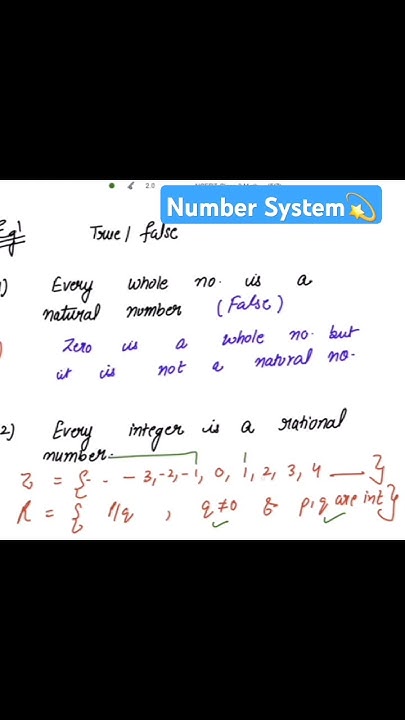 2.0
Number System💫
Eg1 True / false
1) Every whole no. is a
natural number (False)
Zero is a whole no. but
it is not a natural no.
2) Every integer is a rational
number.
Z = {- - - 3, -2, -1, 0, 1, 2, 3, 4 ___ }
R = { p/q , q ≠ 0 & p, q are int }